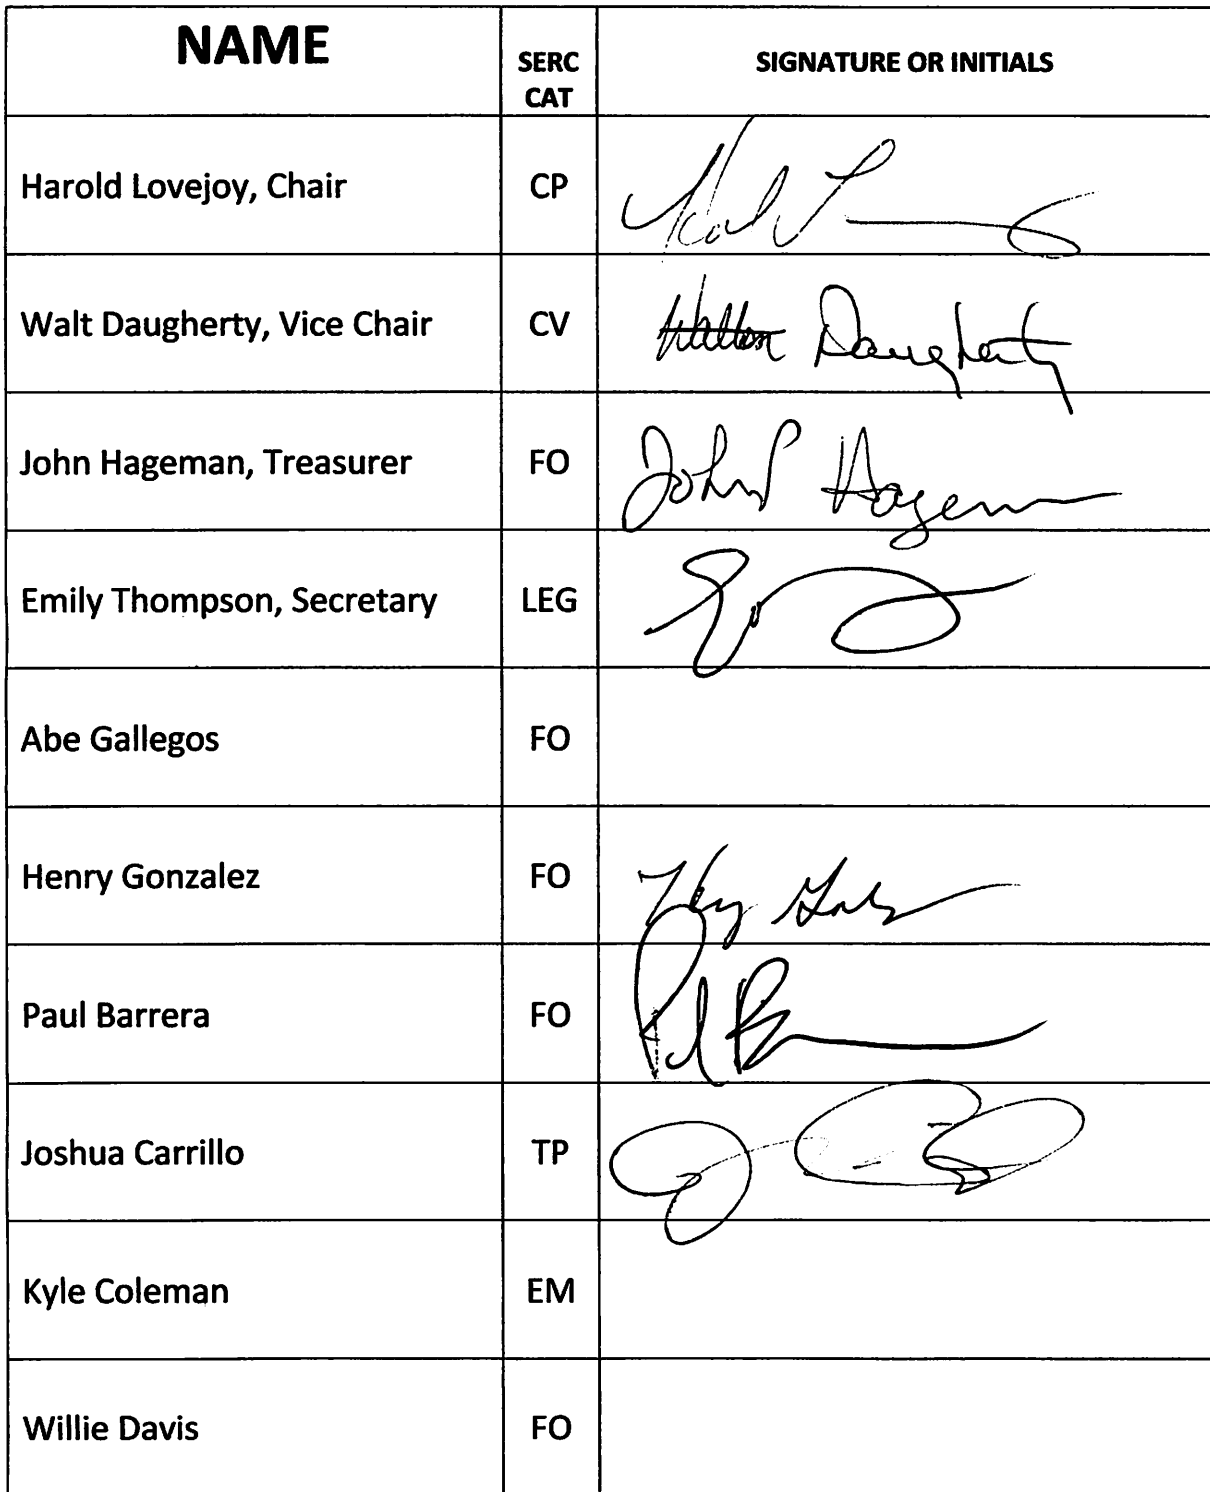 NAME SERC CAT SIGNATURE OR INITIALS
Harold Lovejoy, Chair CP
Walt Daugherty, Vice Chair CV Walton Daugherty
John Hageman, Treasurer FO John P Hageman
Emily Thompson, Secretary LEG
Abe Gallegos FO
Henry Gonzalez FO
Paul Barrera FO
Joshua Carrillo TP
Kyle Coleman EM
Willie Davis FO